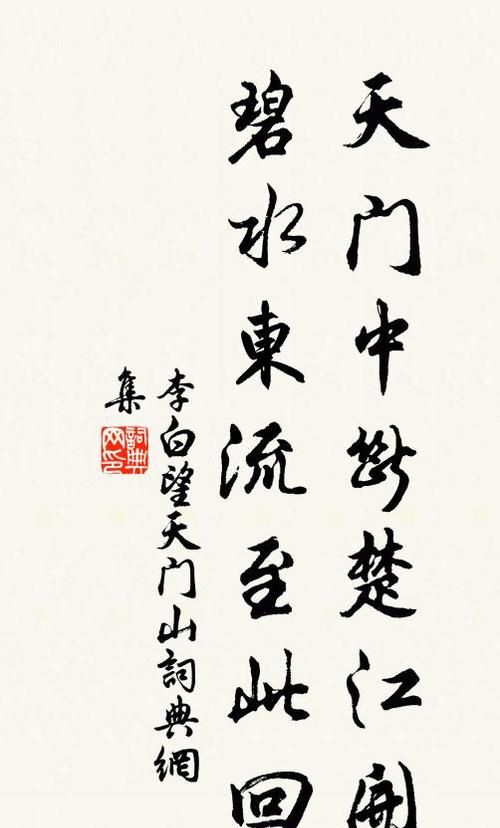 天門中斷楚江開
碧水東流至此回
李白望天門山詞典網
集
詞典
网印